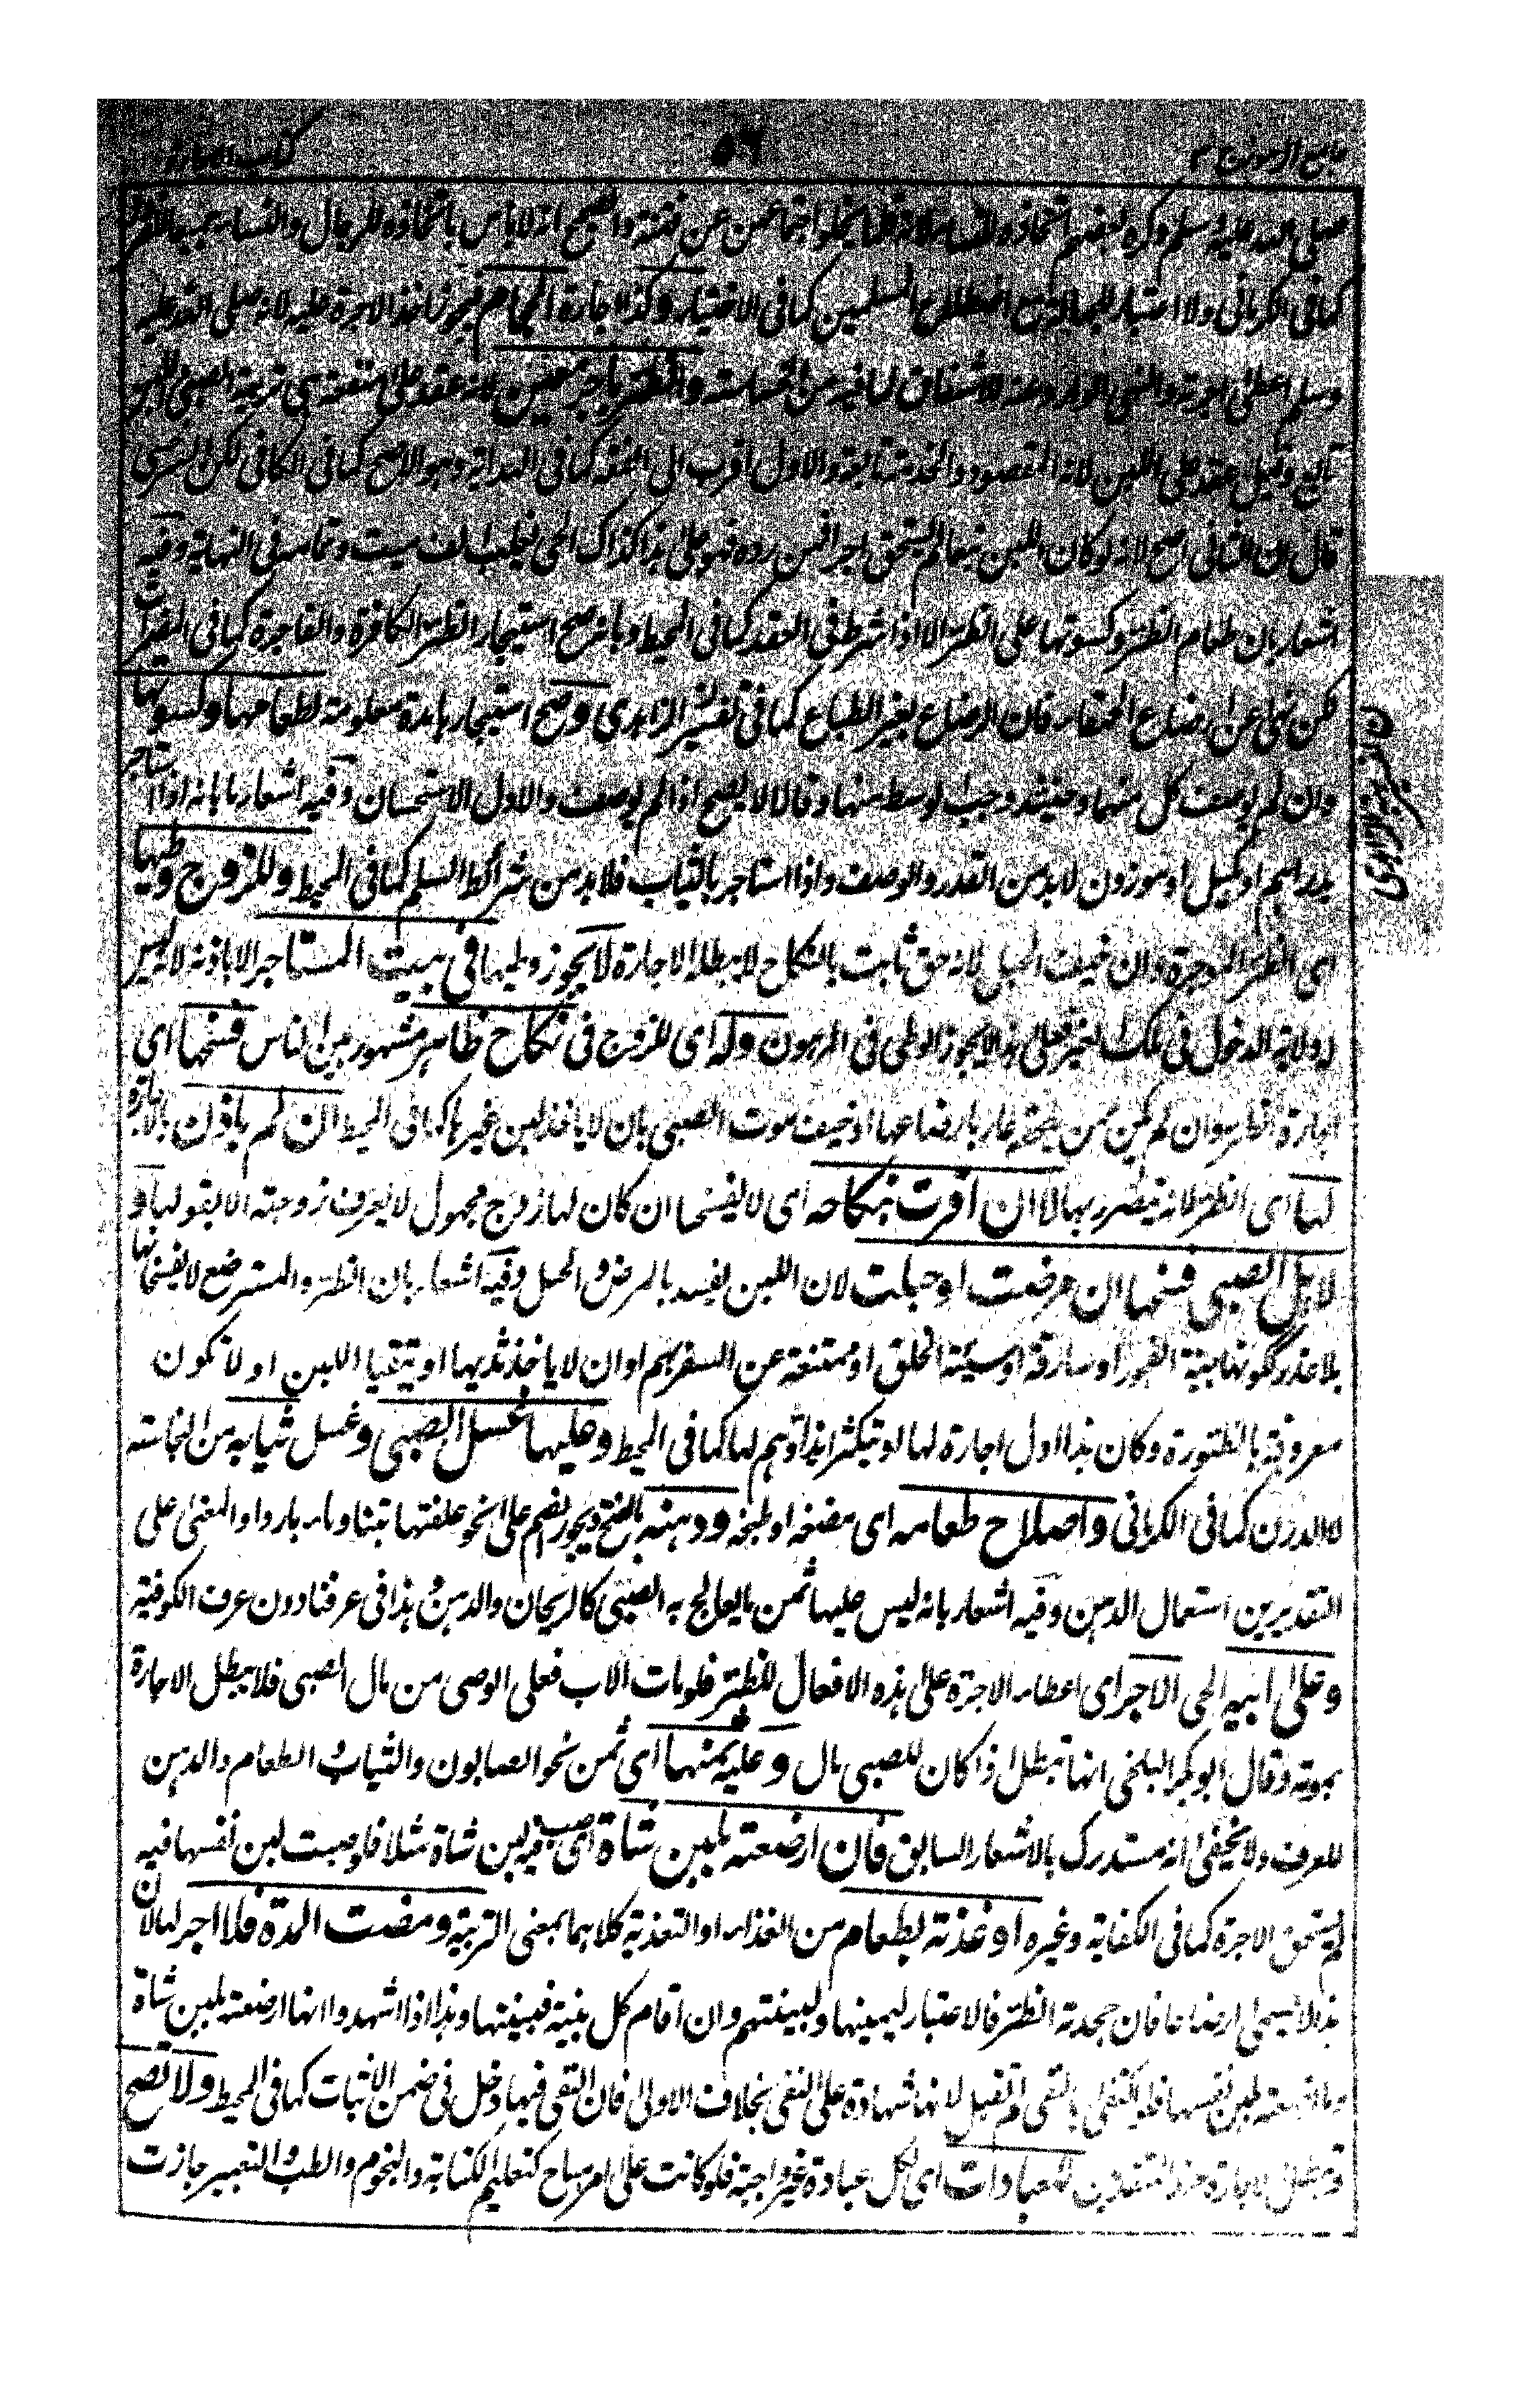 جامع الرموز ج ٢ ٥٦ كتاب الاجارة
صلى الله عليه وسلم وكره بعضهم اتخاذه للنساء لانه قلما يخلو اجتماعهن عن فتنة والصحيح انه لا باس باتخاذه للرجال والنساء جميعا
كما فى الكرمانى ولا اعتبار للجهالة مع اصطلاح المسلمين كما فى الاختيار وكذا اجارة الحجام فيجوز اخذ الاجرة عليه لانه صلى الله عليه
وسلم اعطى اجرته والنهى الوارد عنه للاشفاق لما فيه من الخساسة والظئر باجر معين لانه عقد على منفعة هى تربية الصبى واللبن
تابع وقيل عقد على اللبن لانه المقصود والخدمة تابعة والاول اقرب الى الفقه كما فى الهداية وهو الاصح كما فى الكافى لكن السرخسى
قال ان الثانى اصح لانه لو كان اللبن تبعا لم يستحق اجرا فمن رده فهو على هذا كذاك الحى لغليب الف ميت وتمامه فى النهاية وفيه
اشعار بان طعام الظئر وكسوتها على الظئر الا اذا شرط فى العقد كما فى المحيط وبانه صح استيجار الظئر الكافرة والفاجرة كما فى
لكن نهى عن ارضاع الحمقاء فان الرضاع يغير الطباع كما فى تفسير الزاهدى وصح استيجارها مدة معلومة لطعامها وكسوتها
وان لم يوصف كل منهما وحينئذ وجب لوسط منهما وقالا لا يصح اذا لم يوصف والاول الاستحسان وفيه اشعار بانه اذا استاجر
بدراهم او مكيل او موزون لا بد من القدر والوصف واذا استاجر بالثياب فلا بد من شرائط السلم كما فى المحيط وللزوج وطيها
اى الظئر الموجرة وان خيف الحبل لانه حق ثابت بالنكاح لا يبطله الاجارة لا يجوز وطيها فى بيت المستاجر الا باذنه لانه ليس
له ولاية الدخول فى ملك الغير فعلى هذا لا يجوز الوطى فى المرهون وله اى للزوج فى نكاح ظاهر مشهور بين الناس فسخها اى
اجارة الظئر وان لم يكن ممن يلحقه عار بارضاعها او خيف موت الصبى بان لا ياخذ لبن غيرها كما فى المحيط ان لم ياذن بالاجارة
لها اى الظئر لانه يتضرر بها لا ان اقرت بنكاحه اى لا يفسخها ان كان لها زوج مجهول لا يعرف زوجته الا بقولها و
لاهل الصبى فسخها ان مرضت او حبلت لان اللبن يفسد بالمرض والحبل وفيه اشعار بان الظئر والمسترضع لا يفسخانها
بلا عذر ككونها بينة الفجور او سارقة او سيئة الخلق او ممتنعة عن السفر بهم او ان لا ياخذ ثديها او يتقيا اللبن او لا تكون
معروفة بالظئورة وكان هذا اول اجارة لها لو تيكثر ايذاؤهم لها كما فى المحيط وعليها غسل الصبى وغسل ثيابه من النجاسة
لا الدرن كما فى الكرمانى واصلاح طعامه اى مضغه او طبخه ودهنه بالفتح ويجوز بضم على نحو علفتها تبنا وماء باردا والمعنى على
التقديرين استعمال الدهن وفيه اشعار بانه ليس عليها ثمن ما يعالج به الصبى كالريحان والدهن وهذا فى عرفنا دون عرف الكوفة
وعلى ابيه الحى الاجر اى اعطاء الاجرة على هذه الافعال للظئر فلو مات الاب فعلى الوصى من مال الصبى فلا يبطل الاجارة
بموته وقال ابو بكر البلخى انها تبطل اذا كان للصبى مال وعليه ثمنها اى ثمن نحو الصابون والثياب والطعام والدهن
للعرف ولا يخفى انه مستدرك بالاشعار السابق فان ارضعته بلبن شاة اى صب فيه لبن شاة مثلا فلو صبت لبن نفسها فيه
لم يستحق الاجرة كما فى الكفاية وغيره او غذته بطعام من الغذاء او التغذية كلاهما بمعنى التربية ومضت المدة فلا اجر لها لان
هذا لا يسمى ارضاعا فان جحدته الظئر فالاعتبار ليمينها ولبينتهم وان اقام كل بنية فبينتها وهذا اذا اشهدوا انها ارضعته بلبن شاة
وما ارضعته بلبن نفسها فلو اكتفى بالنفى لم تقبل لانها شهادة على النفى بخلاف الاولى فان النفى فيها دخل فى ضمن الاثبات كما فى المحيط ولا تصح
وتبطل الاجارة عند المتقدمين للعبادات اى لكل عبادة غير واجبة فلو كانت على امر مباح كتعليم الكتابة والنجوم والطب والتعبير جازت